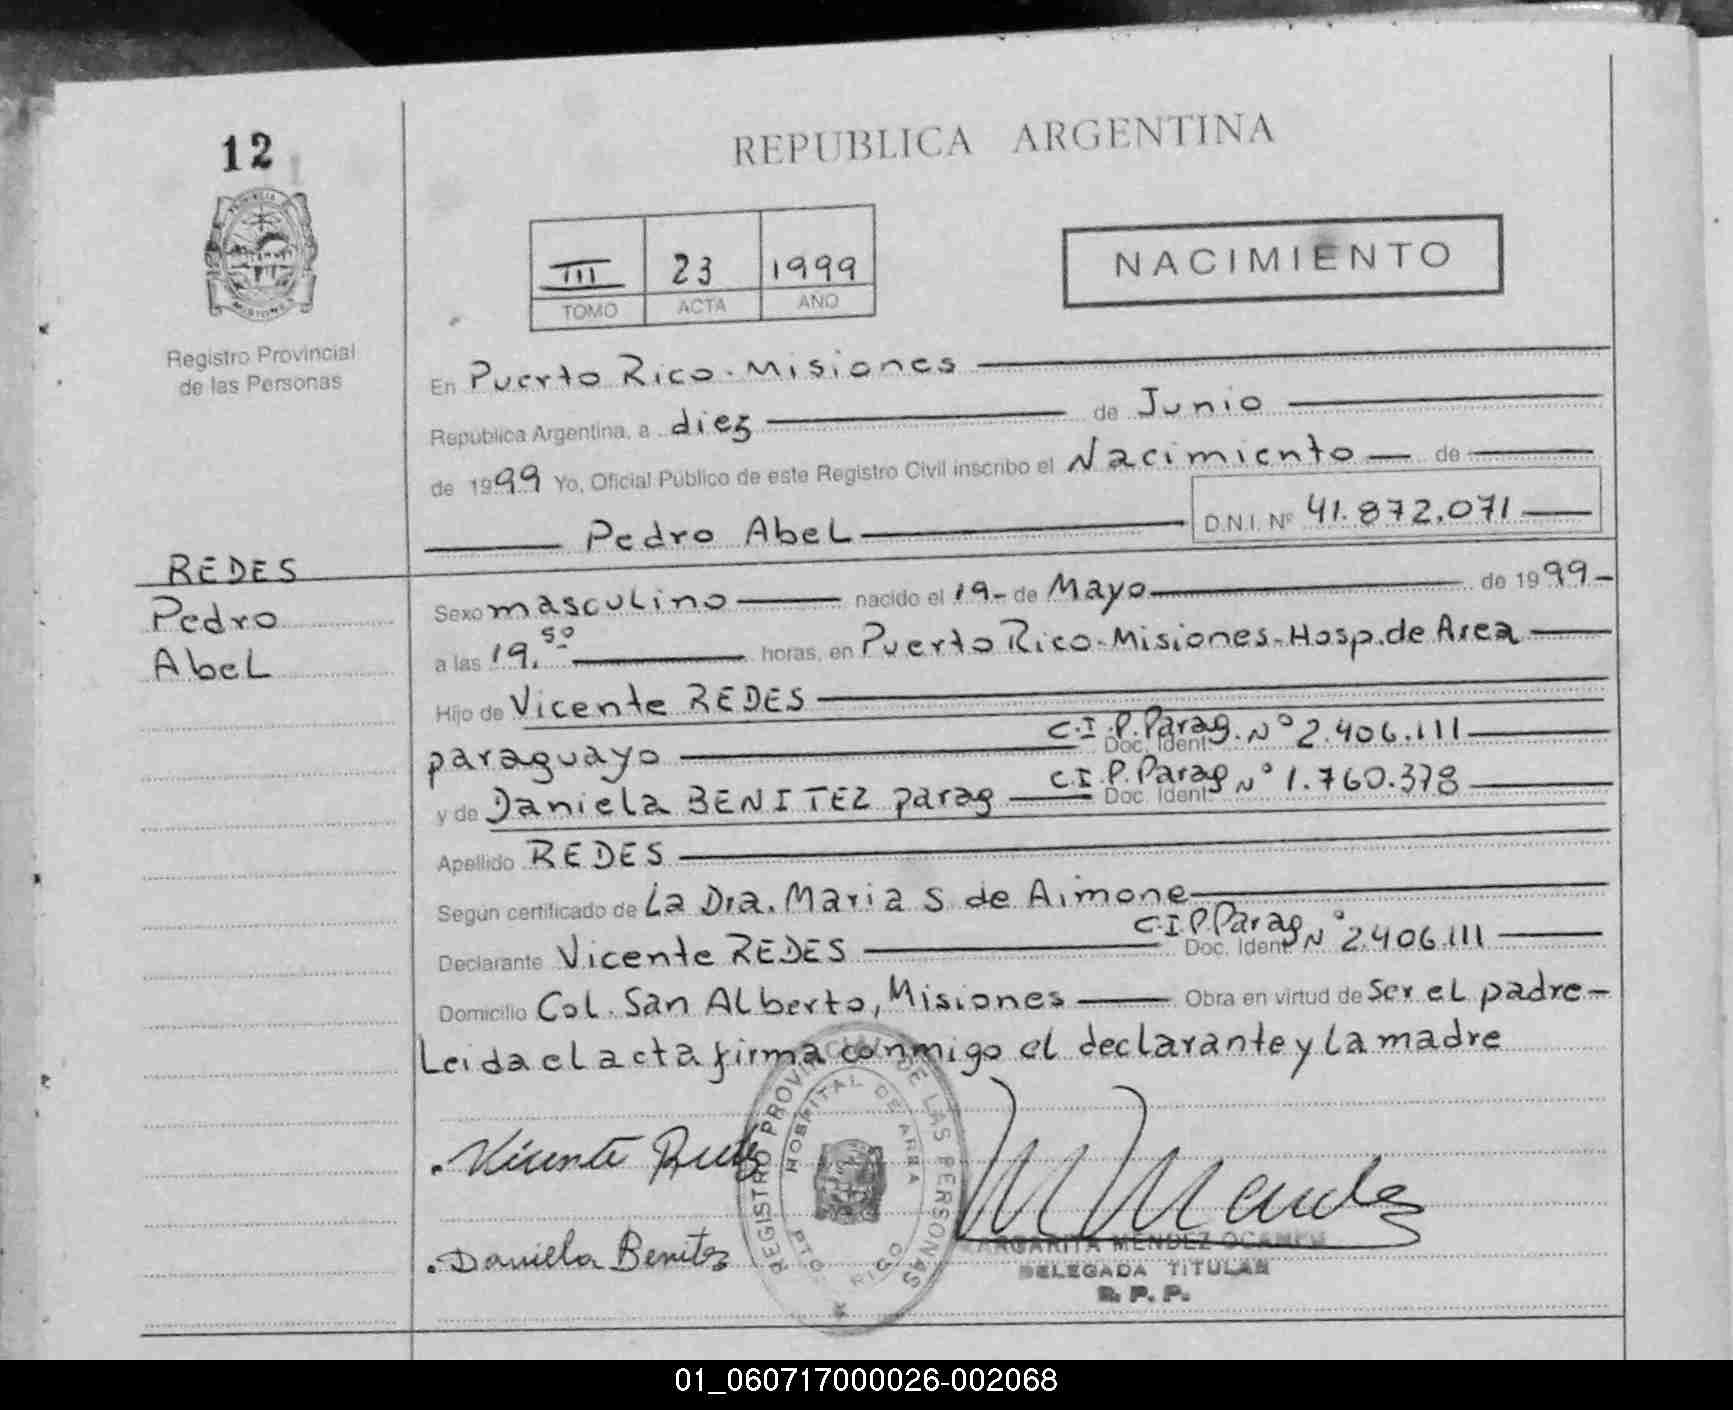 12
REPUBLICA ARGENTINA
III 23 1999
TOMO ACTA AÑO
NACIMIENTO
Registro Provincial
de las Personas
En Puerto Rico - Misiones
República Argentina, a diez de Junio
de 1999 Yo, Oficial Público de este Registro Civil inscribo el Nacimiento de
Pedro Abel D.N.I. Nº 41.872.071
REDES
Pedro
Abel
Sexo masculino nacido el 19- de Mayo de 1999-
a las 19.50 horas, en Puerto Rico-Misiones-Hosp. de Area
Hijo de Vicente REDES
paraguayo Doc. Ident. C.I.P. Parag. Nº 2.406.111
y de Daniela BENITEZ parag Doc. Ident. C.I.P. Parag Nº 1.760.378
Apellido REDES
Según certificado de La Dra. Maria S de Aimone
Declarante Vicente REDES Doc. Ident. C.I.P. Parag Nº 2.406.111
Domicilio Col. San Alberto, Misiones Obra en virtud de ser el padre-
Leida el acta firma conmigo el declarante y la madre
REGISTRO PROVINCIAL DE LAS PERSONAS
HOSPITAL DE AREA
PTO. RICO
Vicente Redes
Daniela Benitez
M Mendez
MARGARITA MENDEZ OCAMPO
DELEGADA TITULAR
R. P. P.
01_060717000026-002068